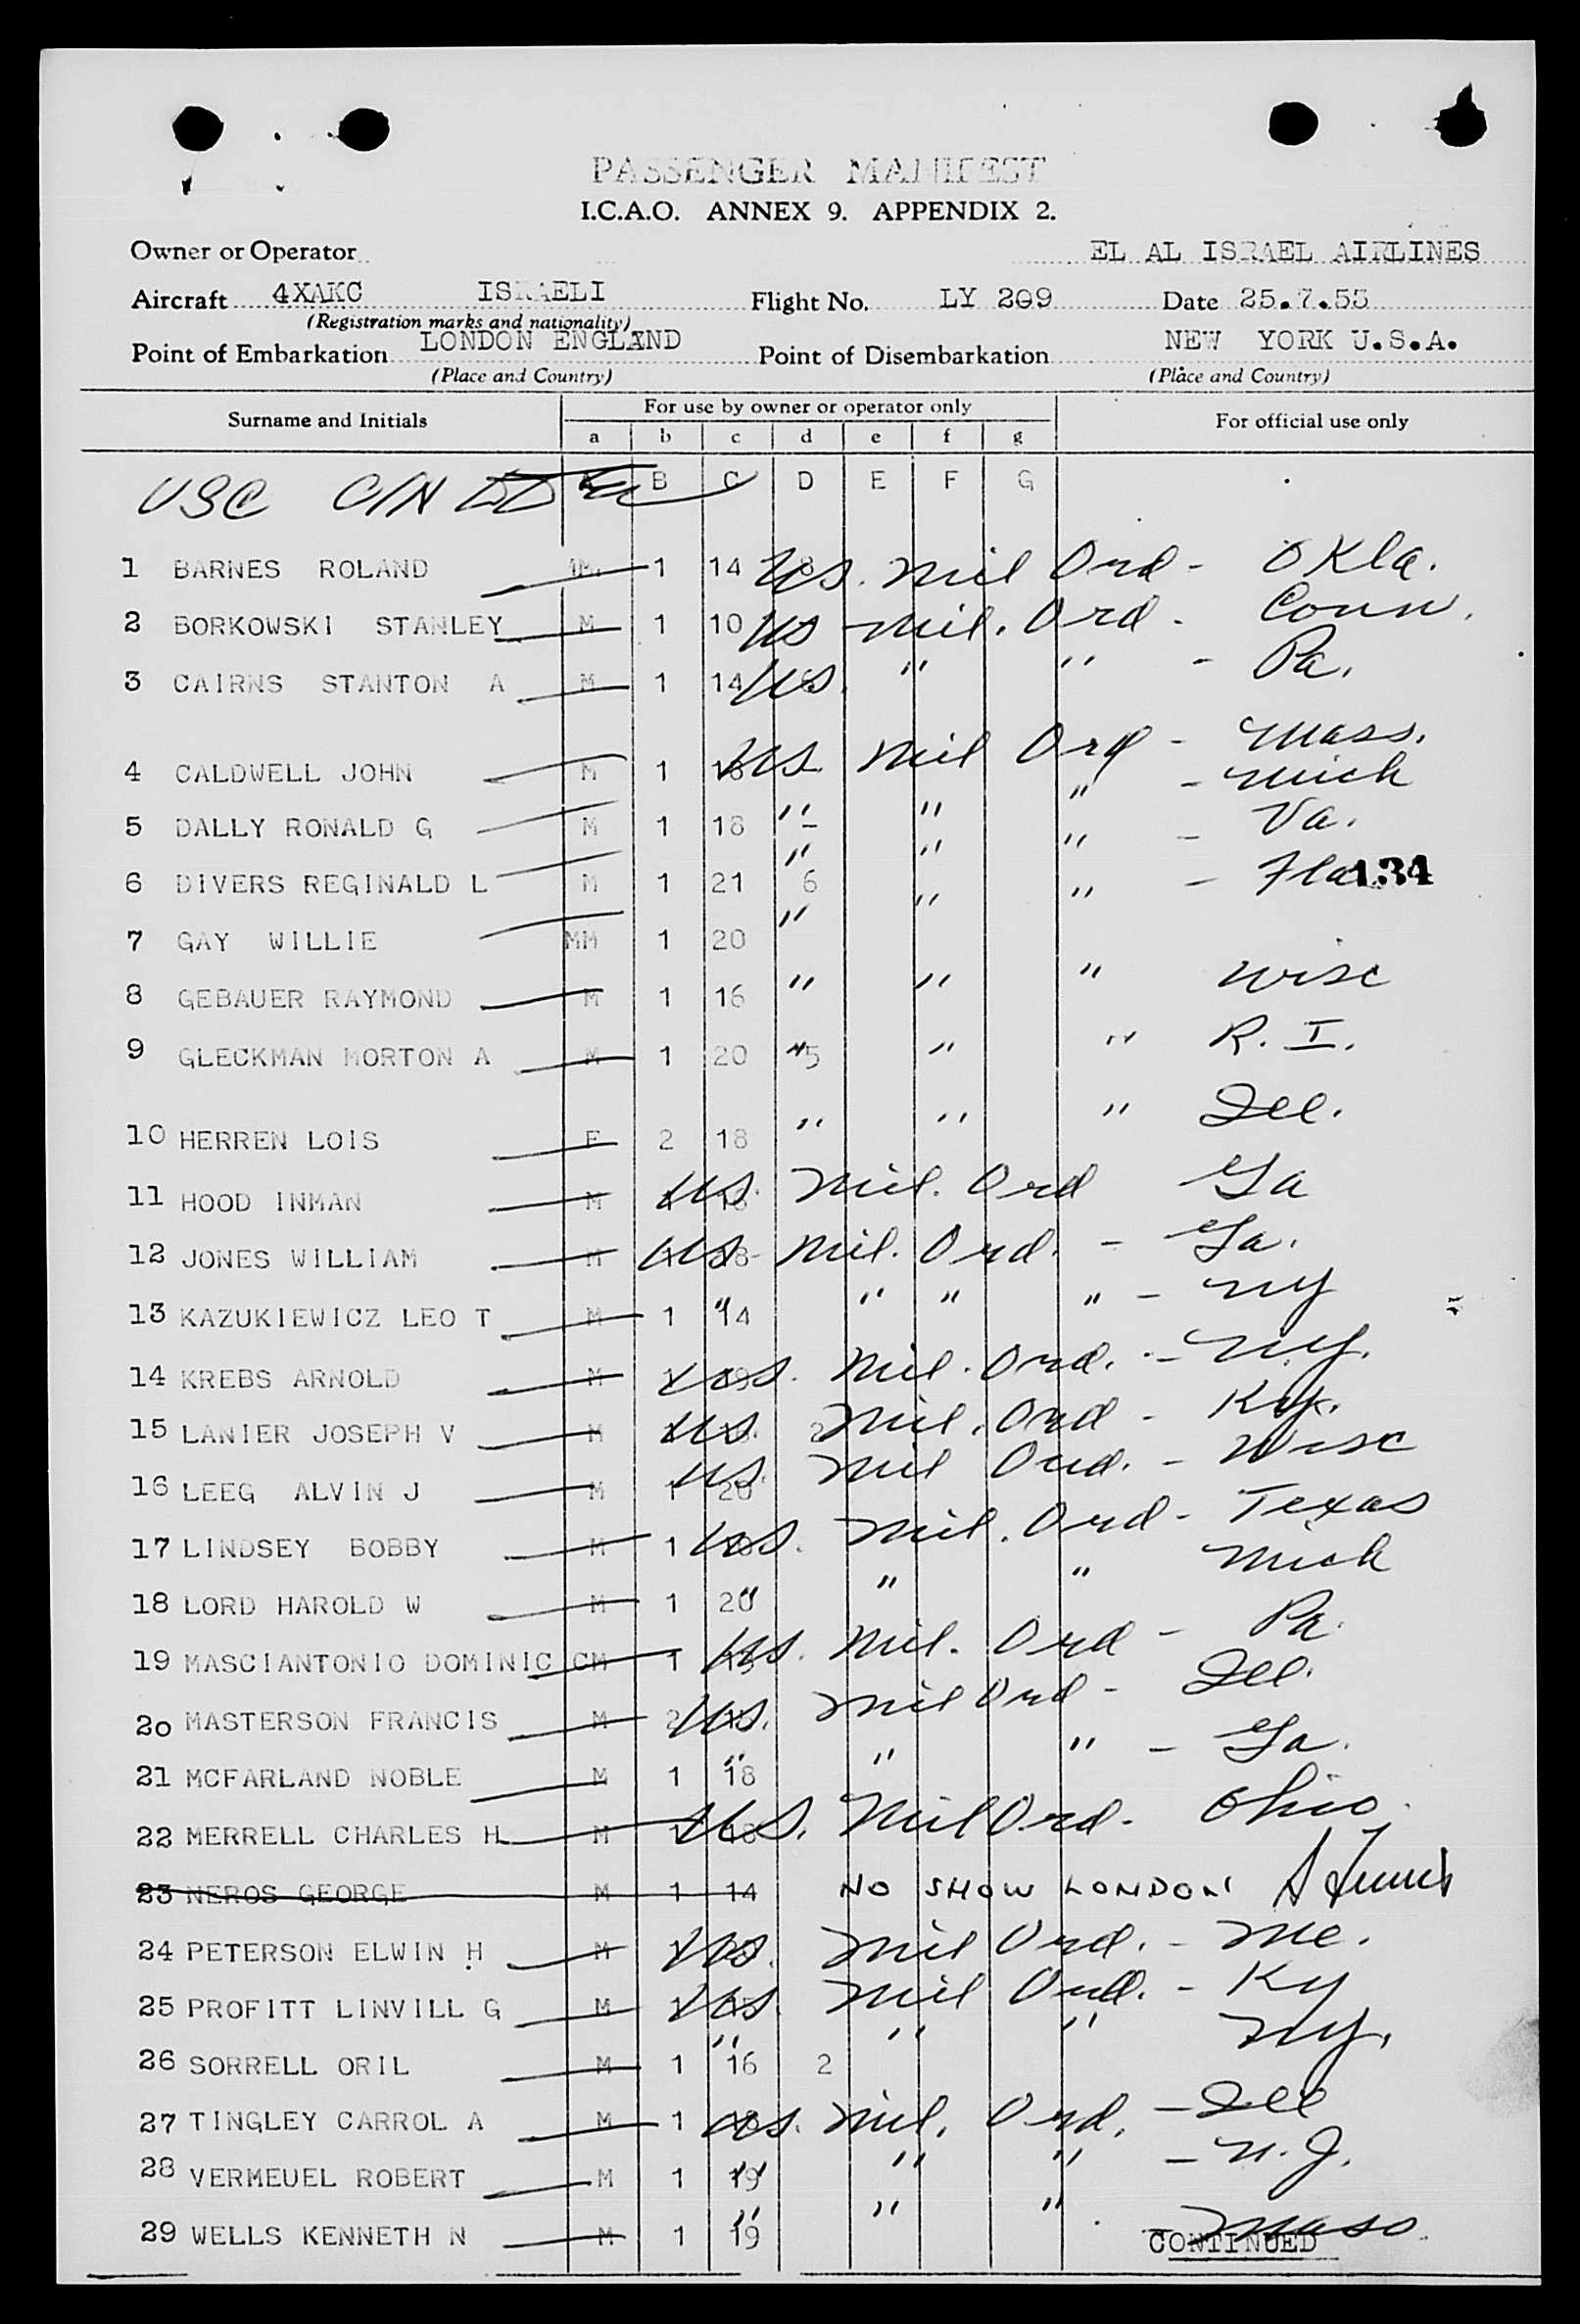 PASSENGER MANIFEST
I.C.A.O. ANNEX 9. APPENDIX 2.
Owner or Operator EL AL ISRAEL AIRLINES
Aircraft 4XAKC ISRAELI Flight No. LY 209 Date 25.7.55
(Registration marks and nationality)
Point of Embarkation LONDON ENGLAND Point of Disembarkation NEW YORK U.S.A.
(Place and Country) (Place and Country)
Surname and Initials For use by owner or operator only For official use only
a b c d e f g
USC B C D E F G
1 BARNES ROLAND M 1 14 US. Mil Ord - Okla.
2 BORKOWSKI STANLEY M 1 10 US Mil. Ord - Conn.
3 CAIRNS STANTON A M 1 14 US. " " - Pa.
4 CALDWELL JOHN M 1 18 US Mil Ord - Mass.
5 DALLY RONALD G M 1 18 - " " " - Mich
6 DIVERS REGINALD L M 1 21 6 " " " - Va.
7 GAY WILLIE MM 1 20 " " " - Fla. 134
8 GEBAUER RAYMOND M 1 16 " " " Wisc
9 GLECKMAN MORTON A M 1 20 5 " " " R.I.
10 HERREN LOIS F 2 18 " " " Ill.
11 HOOD INMAN M US. Mil. Ord Ga
12 JONES WILLIAM M US Mil. Ord. - Ga.
13 KAZUKIEWICZ LEO T M 1 14 " " " " - NY
14 KREBS ARNOLD M US. Mil. Ord. - N.Y.
15 LANIER JOSEPH V M US. 2 Mil. Ord - Ky.
16 LEEG ALVIN J M 1 20 US. Mil Ord. - Wisc
17 LINDSEY BOBBY M 1 US. Mil. Ord - Texas
18 LORD HAROLD W M 1 20 " " " Mich
19 MASCIANTONIO DOMINIC CM 1 US. Mil. Ord - Pa.
20 MASTERSON FRANCIS M 2 US. Mil Ord - Ill.
21 MCFARLAND NOBLE M 1 18 " " " - Ga.
22 MERRELL CHARLES H M US. Mil Ord. - Ohio.
23 NEROS GEORGE M 1 14 NO SHOW LONDON
24 PETERSON ELWIN H M US. Mil Ord. - Me.
25 PROFITT LINVILL G M US. Mil Ord. - Ky
26 SORRELL ORIL M 1 16 2 " " " NY.
27 TINGLEY CARROL A M 1 US. Mil. Ord. - Ill
28 VERMEUEL ROBERT M 1 19 " " " - N.J.
29 WELLS KENNETH N M 1 19 " " " - Mass.
CONTINUED